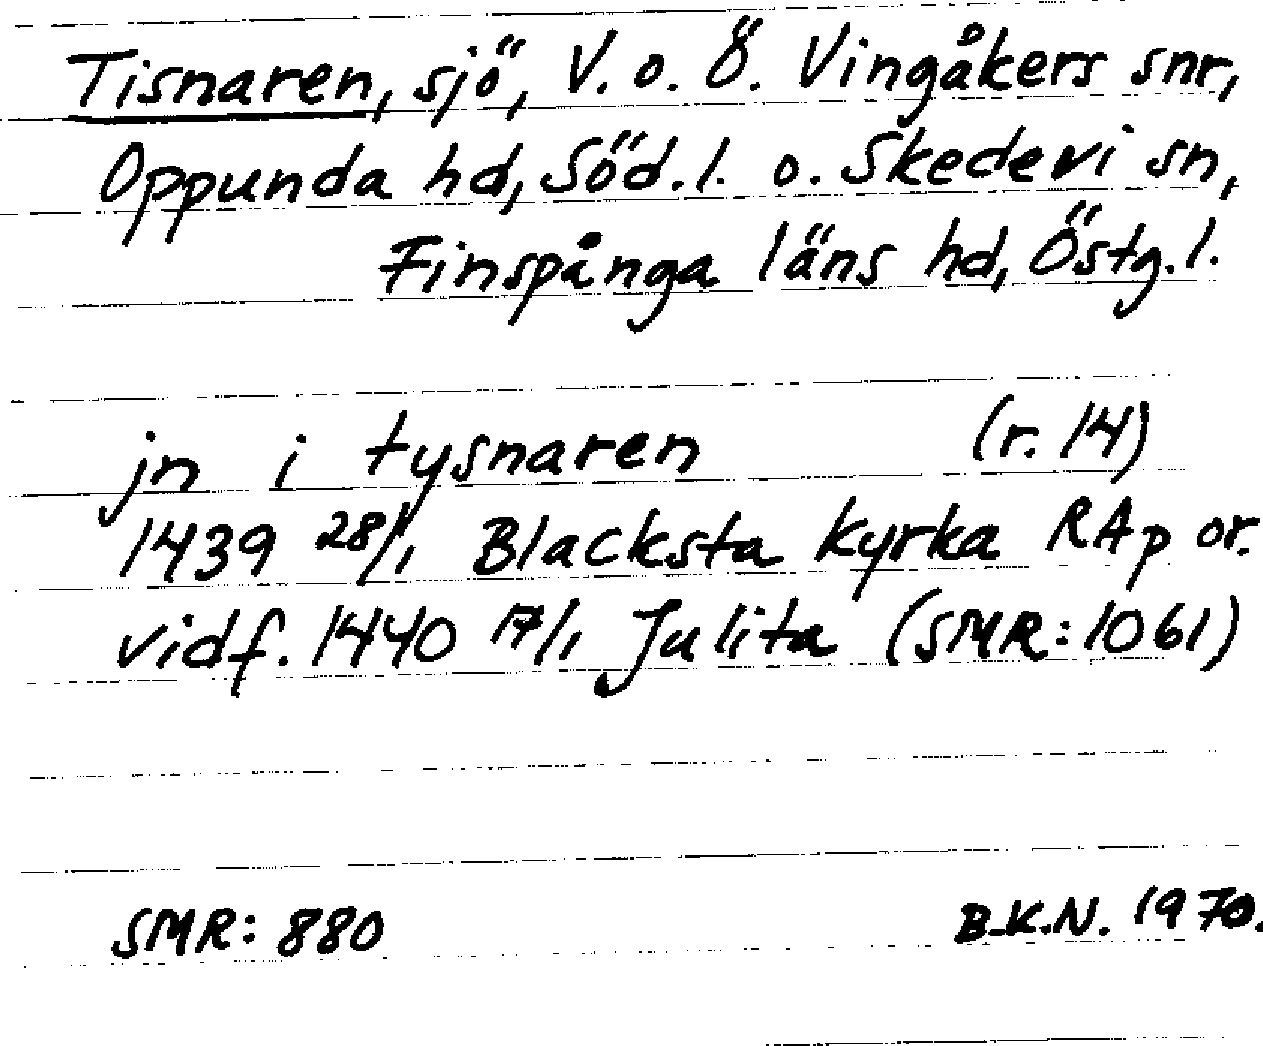 Tisnaren, sjö, V. o. Ö. Vingåkers snr,
Oppunda hd, Söd. l. o. Skedevi sn,
Finspånga läns hd, Östg. l.
jn i tysnaren (r. 14)
1439 28/1, Blacksta kyrka RAp or.
vidf. 1440 17/1, Julita (SMR: 1061)
SMR: 880 B.K.N. 1970.